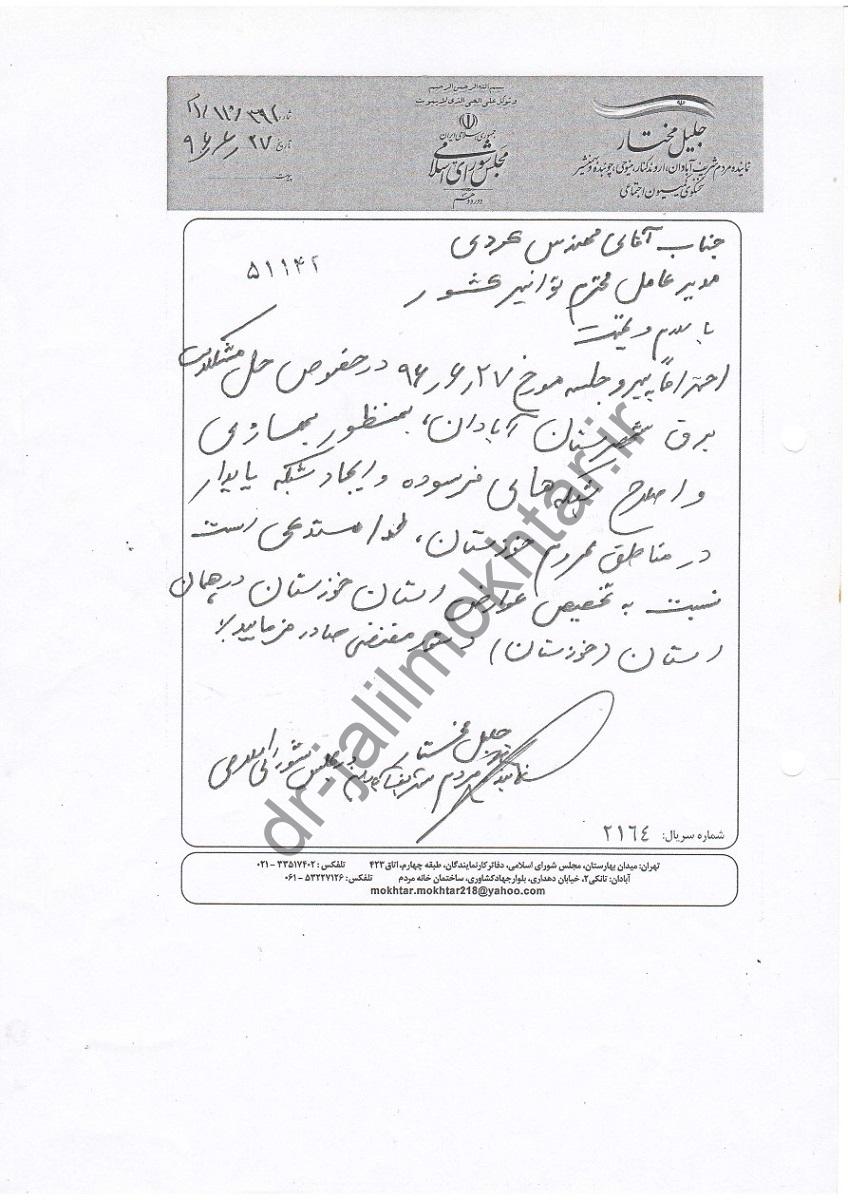 بسم الله الرحمن الرحیم
و توکل علی الحی الذی لا یموت
جمهوری اسلامی ایران
مجلس شورای اسلامی
دوره دهم
جلیل مختار
نماینده مردم شریف آبادان، اروندکنار، مینوئی، چوئبده و بهمنشیر
سخنگوی کمیسیون اجتماعی
شماره
تاریخ ۹۶٫۶٫۲۷
پیوست
جناب آقای مهندس کردی
۵۱۱۴۲
مدیر عامل محترم توانیر کشور
با سلام و تحیت
احتراماً پیرو جلسه مورخ ۹۶٫۶٫۲۷ در خصوص حل مشکلات
برق شهرستان آبادان، بمنظور بهسازی
و اصلاح شبکه‌های فرسوده و ایجاد شبکه پایدار
در مناطق محروم خوزستان، لذا مستدعی است
نسبت به تخصیص عوارض استان خوزستان در همان
استان (خوزستان) دستور مقتضی صادر فرمایید
جلیل مختار
نماینده مردم شریف آبادان در مجلس شورای اسلامی
شماره سریال: ۲۱۶۴
تهران: میدان بهارستان، مجلس شورای اسلامی، دفاتر کار نمایندگان، طبقه چهارم، اتاق ۴۲۳ تلفکس: ۳۳۵۱۷۴۰۲ - ۰۲۱
آبادان: تانکی۲، خیابان دهداری، بلوار جهاد کشاوری، ساختمان خانه مردم تلفکس: ۵۳۲۲۷۱۲۶ - ۰۶۱
mokhtar.mokhtar218@yahoo.com
dr-jalilmokhtar.ir